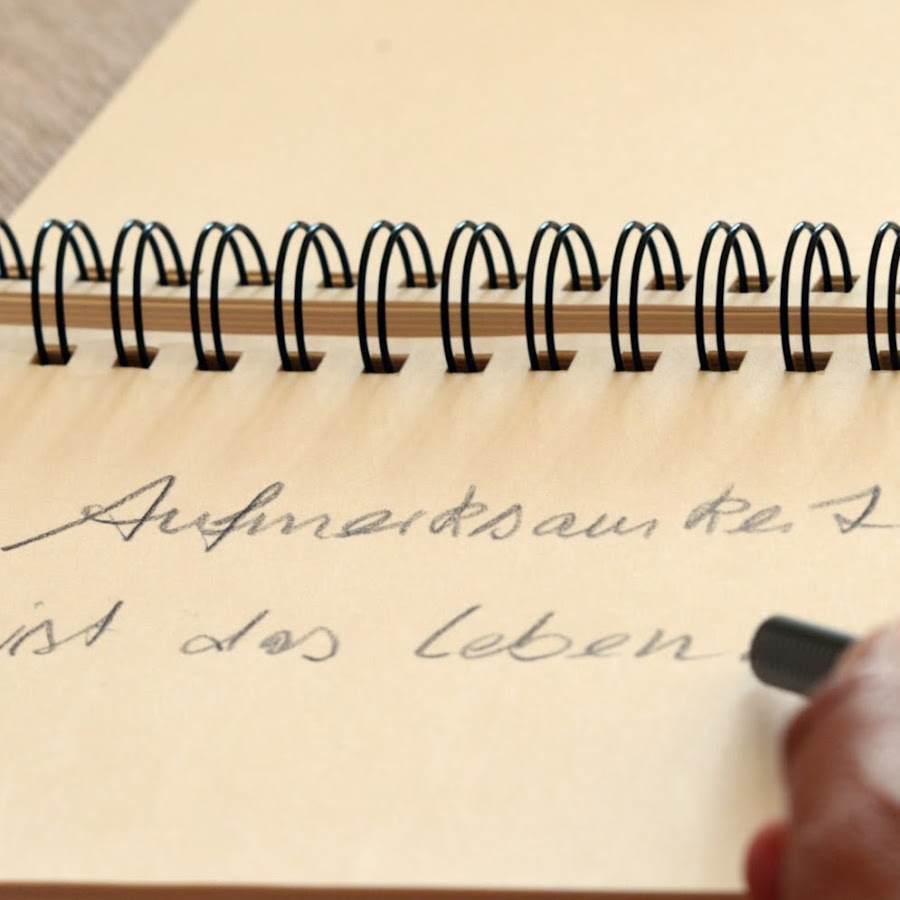 Aufmerksamkeit
ist das Leben.